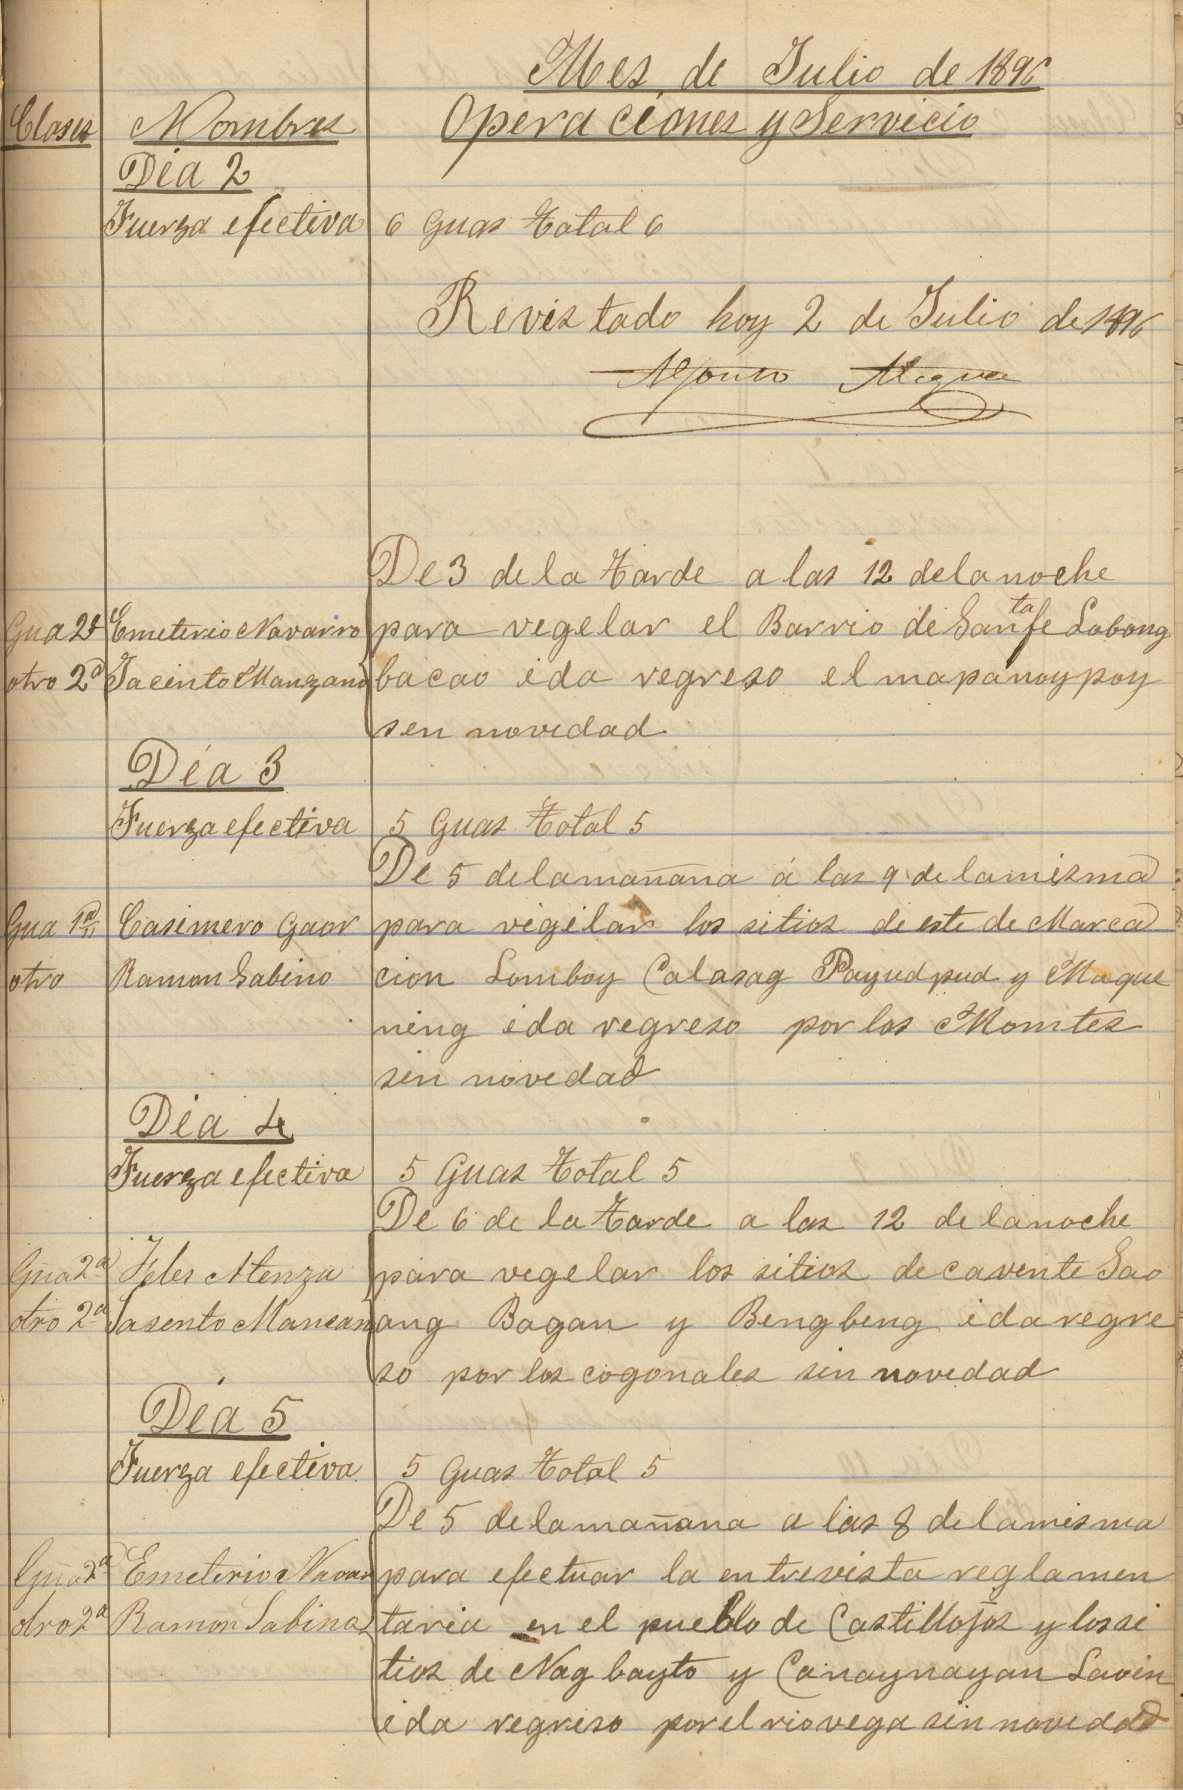 Mes de Julio de 1896
Clases Nombres Operaciones y Servicio
Dia 2
Fuerza efectiva 6 Guas Total 6
Revistado hoy 2 de Julio de 1896
De 3 de la tarde a las 12 de la noche
Gua 2ª Emeterio Navarro para vegelar el Barrio de Santa fe Lobong
otro 2ª Jacinto Manzano bacao ida regreso el mapanoypoy
sen novedad
Dia 3
Fuerza efectiva 5 Guas Total 5
De 5 de la mañana á las 9 de la misma
Gua 1ª Casimero Gaor para vigilar los sitios de este de Marca
otro Ramon Sabino cion Lomboy Calasag Payudpud y Maque
ning ida regreso por los Momtes
sin novedad
Dia 4
Fuerza efectiva 5 Guas Total 5
De 6 de la tarde a las 12 de la noche
Gua 2ª Atenza para vegelar los sitios de cavente Sao
otro 2ª Jasento Manzan ang Bagan y Bengbeng ida regre
so por los cogonales sin novedad
Dia 5
Fuerza efectiva 5 Guas Total 5
De 5 de la mañana a las 8 de la misma
Gua 2ª Emeterio Navar para efectuar la entrevista reglamen
otro 2ª Ramon Sabina taria en el pueblo de Castillojos y los si
tios de Nagbayto y Canaynayan Lavin
ida regreso por el rio vega sin novedad